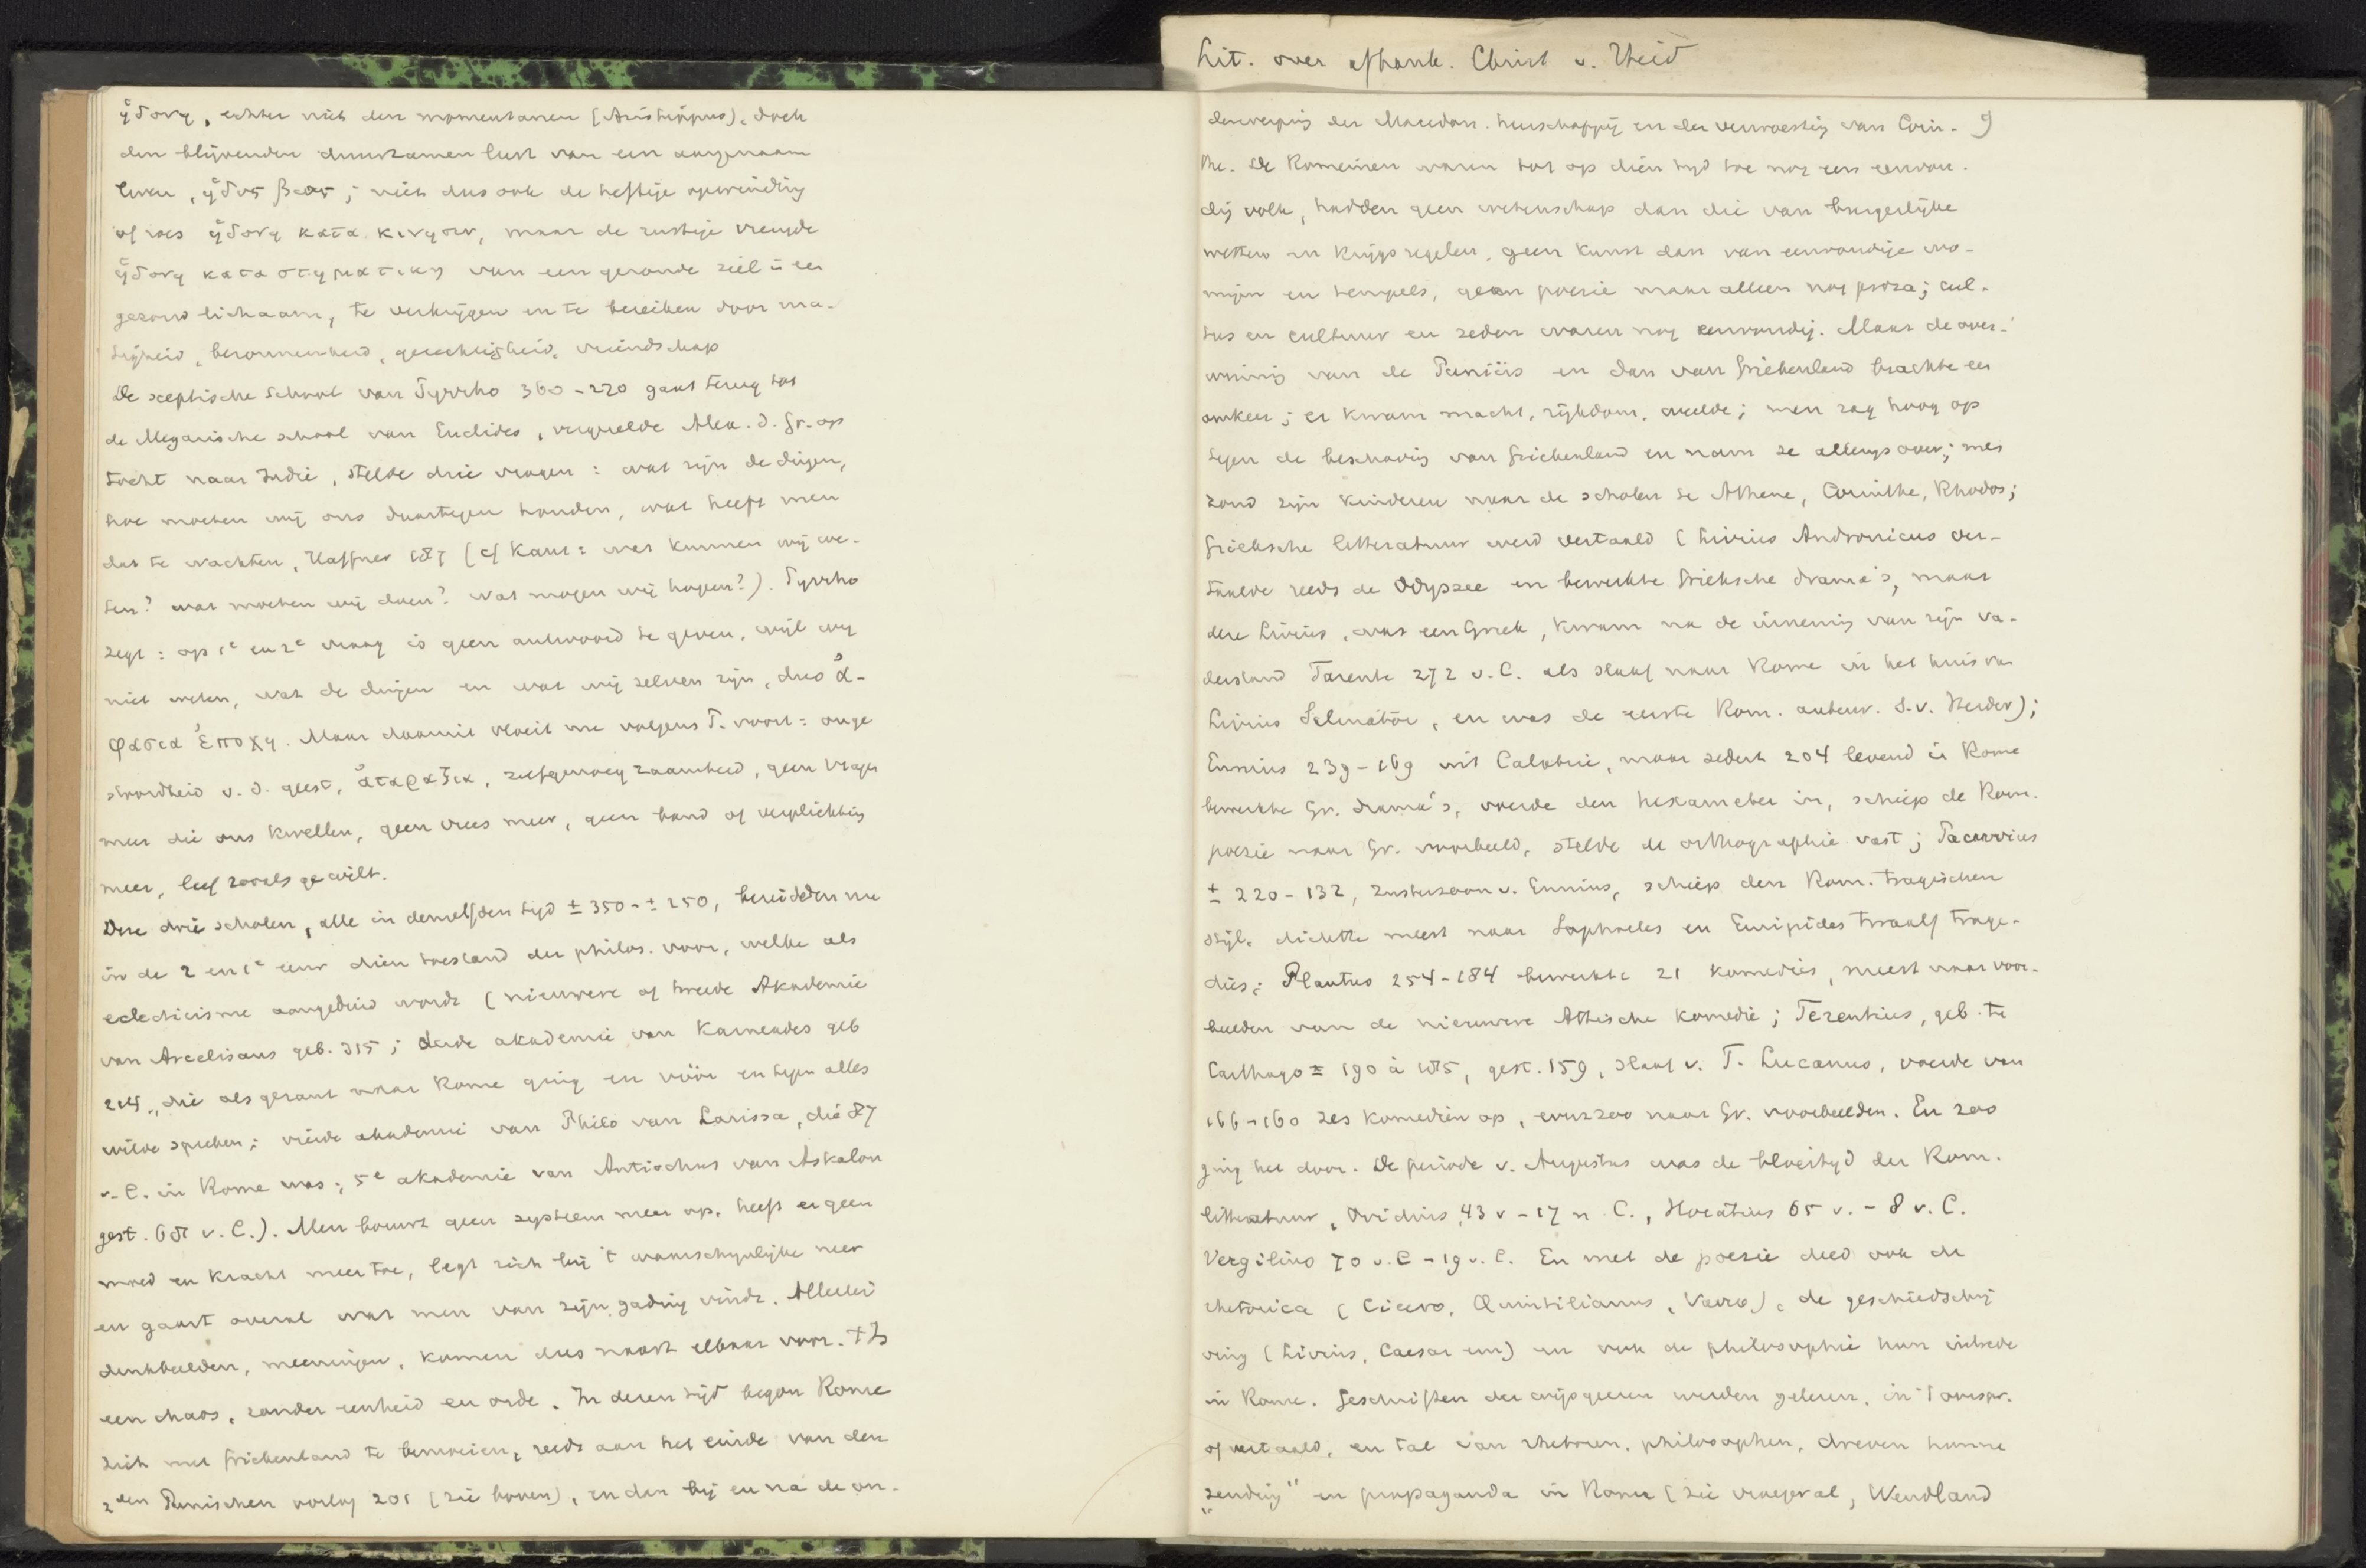 ἡδονη, echter niet den momentanen (Aristippus), doch
den blijvenden duurzamen lust van een aangenaam
leven, ἡδυς βιος; niet dus ook de heftige opwinding
of roes ἡδονη κατα κινησιν, maar de rustige vreugde
ἡδονη καταστηματικη van een gezonde ziel in een
gezond lichaam, te verkrijgen en te bereiken door ma-
tigheid, bezonnenheid, gerechtigheid, vriendschap
De sceptische School van Pyrrho 360-270 gaat terug tot
de Megarische school van Euclides, vergezelde Alex. d. Gr. op
tocht naar Indie, stelde drie vragen: wat zijn de dingen,
hoe moeten wij ons daartegen houden, wat heeft men
dan te wachten, Haffner 187 (cf Kant: wat kunnen wij we-
ten? wat moeten wij doen? wat mogen wij hopen?). Pyrrho
zegt: op 1e en 2e vraag is geen antwoord te geven, wijl wij
niet weten, wat de dingen en wat wij zelven zijn, dus ἀ-
φασια ἐποχη. Maar daaruit vloeit nu volgens P. voort: onge
stoordheid v. d. geest, ἀταραξια, zelfgenoegzaamheid, geen vragen
meer die ons kwellen, geen vrees meer, geen band of verplichting
meer, leef zooals ge wilt.
Deze drie scholen, alle in denzelfden tijd ± 350-± 250, bereidden nu
in de 2 en 1e eeuw dien toestand der philos. voor, welke als
eclecticisme aangeduid wordt (nieuwere of tweede Akademie
van Arcelisaus geb. 315; derde akademie van Karneades geb
214, die als gezant naar Rome ging en vóór en tegen alles
wilde spreken; vierde akademie van Philo van Larissa, die 87
v. C. in Rome was; 5e akademie van Antiochus van Askalon
gest. 68 v. C.). Men bouwt geen systeem meer op, heeft er geen
moed en kracht meer toe, legt zich bij 't waarschijnlijke neer
en gaart overal wat men van zijn gading vindt. Allerlei
denkbeelden, meeningen, komen dus naast elkaar voor. 't Is
een chaos, zonder eenheid en orde. In dezen tijd begon Rome
zich met Griekenland te bemoeien, reeds aan het einde van den
2den Punischen oorlog 201 (zie boven), en dan bij en na de on-
Lit. over afhank. Christ v. Heid
derwerping der Macedon. heerschappij en der verwoesting van Corin- 9
the. De Romeinen waren tot op dien tijd toe nog een eenvou-
dig volk, hadden geen wetenschap dan die van burgerlijke
wetten en krijgsregelen, geen kunst dan van eenvoudige wo-
ningen en tempels, geen poezie maar alleen nog proza; cul-
tus en cultuur en zeden waren nog eenvoudig. Maar de over-
winning van de Puniërs en dan van Griekenland brachte een
omkeer; er kwam macht, rijkdom, weelde; men zag hoog op
tegen de beschaving van Griekenland en nam ze allengs over; men
zond zijn kinderen naar de scholen te Athene, Corinthe, Rhodos;
Grieksche litteratuur werd vertaald (Livius Andronicus ver-
taalde reeds de Odyssee en bewerkte Grieksche drama's, maar
deze Livius, was een Griek, kwam na de inneming van zijn va-
derland Tarente 272 v. C. als slaaf naar Rome in het huis van
Livius Salinator, en was de eerste Rom. auteur. S. v. Herder);
Ennius 239-169 uit Calabrie, maar sedert 204 levend in Rome
bewerkte Gr. drama's, voerde den hexameter in, schiep de Rom.
poezie naar Gr. voorbeeld, stelde de orthographie vast; Pacuvius
± 220-132, zusterzoon v. Ennius, schiep den Rom. tragischen
stijl, dichtte meest naar Sophocles en Euripides twaalf trage-
dies; Plautus 254-184 bewerkte 21 komedies, meest naar voor-
beelden van de nieuwere Attische komedie; Terentius, geb. te
Carthago ± 190 à 185, gest. 159, slaaf v. T. Lucanus, voerde van
166-160 zes komedien op, evenzoo naar Gr. voorbeelden. En zoo
ging het door. De periode v. Augustus was de bloeityd der Rom.
litteratuur, Ovidius, 43 v - 17 n. C., Horatius 65 v. - 8 v. C.
Vergilius 70 v. C - 19 v. C. En met de poezie deed ook de
rhetorica (Cicero, Quintilianus, Varro), de geschiedschrij
ving (Livius, Caesar enz) en ook de philosophie hun intrede
in Rome. Geschriften der wijsgeeren werden gelezen, in 't oorspr.
of vertaald, en tal van rhetoren, philosophen, dreven hunne
„zending" en propaganda in Rome (zie vooral, Wendland